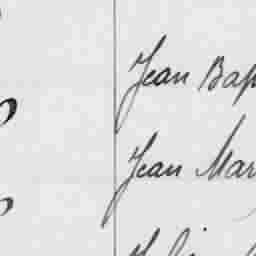 Jean Bap
Jean Mar